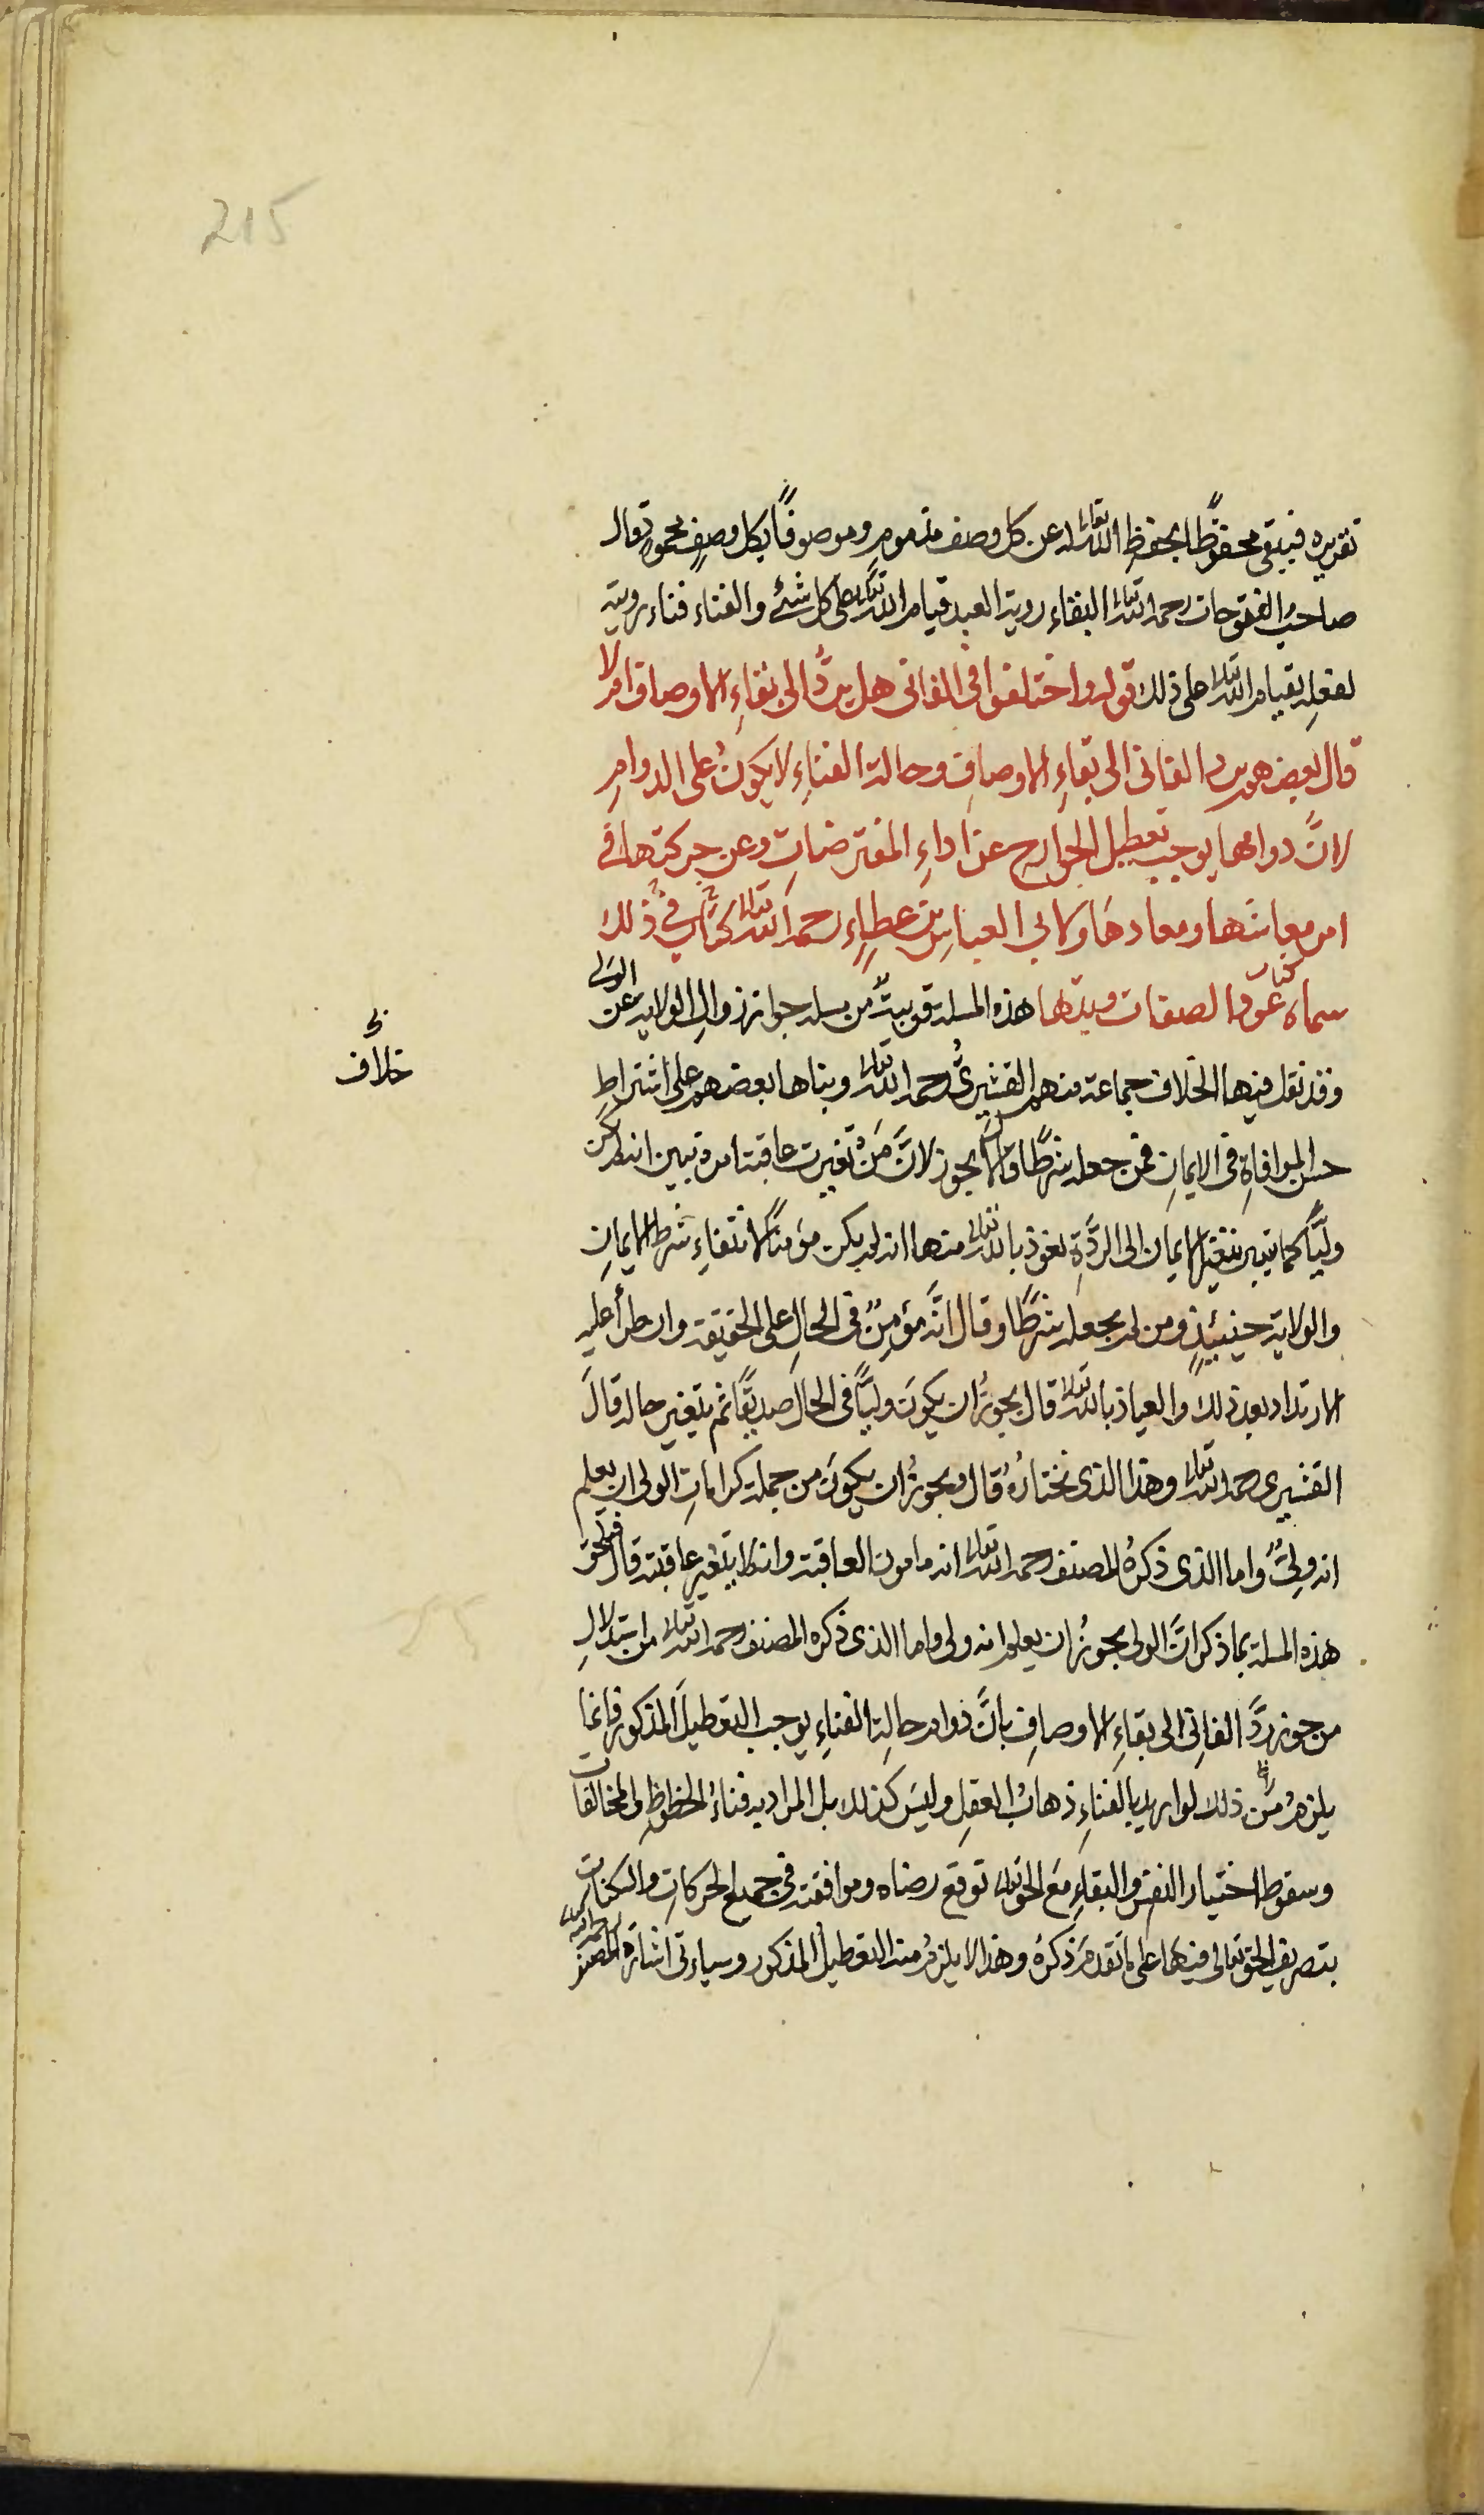 215
تقريره فيبقى محفوظًا بحفظِ الله تعالى له عن كل وصف مذمومٍ وموصوفًا بكل وصفٍ محمودٍ قال
صاحبُ الفتوحات رحمه الله تعالى البقاء روية العبد قيام الله تعالى على كل شئ والفناء فناء روية
لفعلِه بقيام الله تعالى على ذلك قوله واختلفوا فى الفانى هل يردُّ الى بقاءِ الاوصاف ام لا
قال بعضهم يرد الفانى الى بقاءِ الاوصافِ وحالة الفناءِ لا يكونُ على الدوامِ
لانَّ دوامها يوجب تعطيل الجوارح عن اداءِ المفترضاتِ وعن حركتها فى
امر معاشها ومعادهَا ولابي العباسِ بن عطاءٍ رحمه الله تعالى كتابٌ فى ذلك
سماه كتاب عود الصفات وبدئها هذه المسلة قريبةٌ من مسلة جواز زوالِ الولاية عن الولى
وقد نقل فيها الخلاف جماعة منهم القشيرىُّ رحمه الله تعالى وبناها بعضهم على اشتراطِ
خلاف
حسن الموافاةِ فى الايمانِ فمن جعله شرطًا قال لا يجوز لانَّ مَن تغيرت عاقبتة امره تبين انه لم يكن
وليًّا كما تبين بتغير الايمان الى الردَّةِ نعوذ بالله تعالى منها انه لم يكن مؤمنًا لانتفاءِ شرط الايمانِ
والولاية حينئيذٍ ومن لم يجعله شرطًا وقال انَّه مؤمِنٌ فى الحالِ على الحقيقة وان طرأ عليه
الارتداد بعد ذلك والعياذ بالله تعالى قال يجوزُ ان يكونَ وليًّا فى الحال صديقًا ثم يتغير حاله قالَ
القشيرى رحمه الله تعالى وهذا الذى نختارُهُ قال ويجوزُ ان يكونَ من جملة كراماتِ الولى ان يعلم
انه ولىٌّ واما الذى ذكرهُ المصنف رحمه الله تعالى انه مامون العاقبة وانه لا يتغير عاقبته قال فتلحق
هذه المسلة بما ذكر انَّ الولى يجوزُ ان يعلم انه ولى واما الذى ذكره المصنف رحمه الله تعالى من استدلالِ
من جوز ردَّ الفانِى الى بقاءِ الاوصافِ بانَّ دوام حالةِ الفناءِ يوجب التعطيلَ المذكور فانما
يلزمُ من ذلك لو اريد بالفناءِ ذهابُ العقلِ وليسَ كذلك بل المراد به فناءُ الحظوظِ والمخالفات
وسقوط اختيار النفس والبقاءِ مَعَ الحق تعالى توقع رضاه وموافقته فى جميع الحركاتِ والسكنات
بتصريف الحق تعالى فيها على ما تقدمَ ذكرهُ وهذا لا يلزمُ منه التعطيلُ المذكور وسياءتى اشارة المصنف رحمه الله تعالى